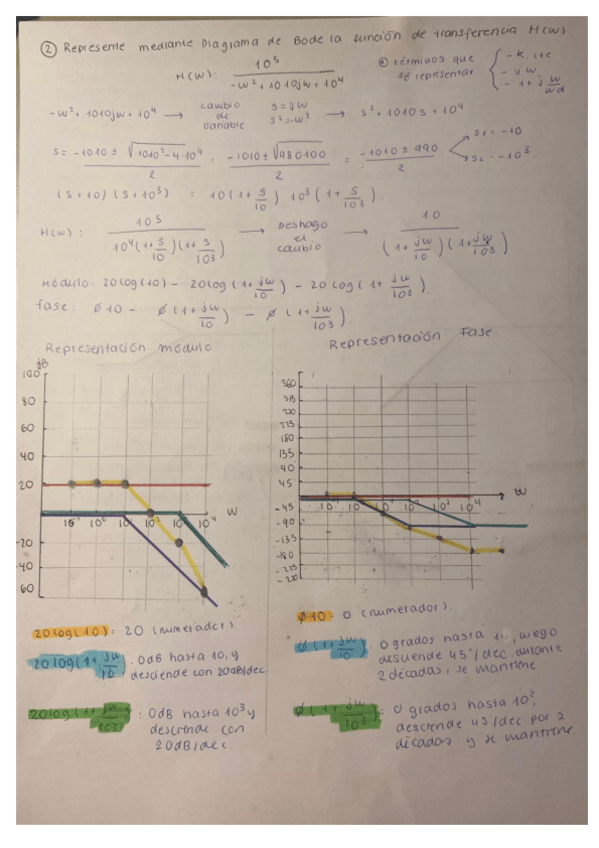 ② Represente mediante Diagrama de Bode la función de transferencia H(w).
H(w): 10⁵ / -w² + 1010jw + 10⁴
⊛ términos que se representar { - K, cte
- jw
- 1 + j w/wd
-w² + 1010jw + 10⁴ → cambio de variable s = jw s² = -w² → s² + 1010s + 10⁴
s = -1010 ± √(1010² - 4·10⁴) / 2 = -1010 ± √980100 / 2 = -1010 ± 990 / 2
s₁ = -10
s₂ = -10³
(s + 10) (s + 10³) = 10 (1 + s/10) 10³ (1 + s/10³)
H(w): 10⁵ / 10⁴ (1 + s/10) (1 + s/10³) → Deshago el cambio → 10 / (1 + jw/10) (1 + jw/10³)
módulo: 20log(10) - 20log(1 + jw/10) - 20log(1 + jw/10³)
fase: ø 10 - ø(1 + jw/10) - ø(1 + jw/10³)
Representación módulo
Representación Fase
dB
100
80
60
40
20
-20
-40
60
10⁴
w
360
180
135
90
45
-45
-90
-135
-180
-225
10⁴
w
20log(10): 20 (numerador)
20log(1 + jw/10): 0dB hasta 10, y
desciende con 20dB/dec
20log(1 + jw/10³): 0dB hasta 10³ y
desciende con
20dB/dec.
ø 10: 0 (numerador).
ø(1 + jw/10): 0 grados hasta 1, luego
desciende 45°/dec durante
2 décadas, se mantiene
ø(1 + jw/10³): 0 grados hasta 10²,
desciende 45/dec por 2
décadas y se mantiene.